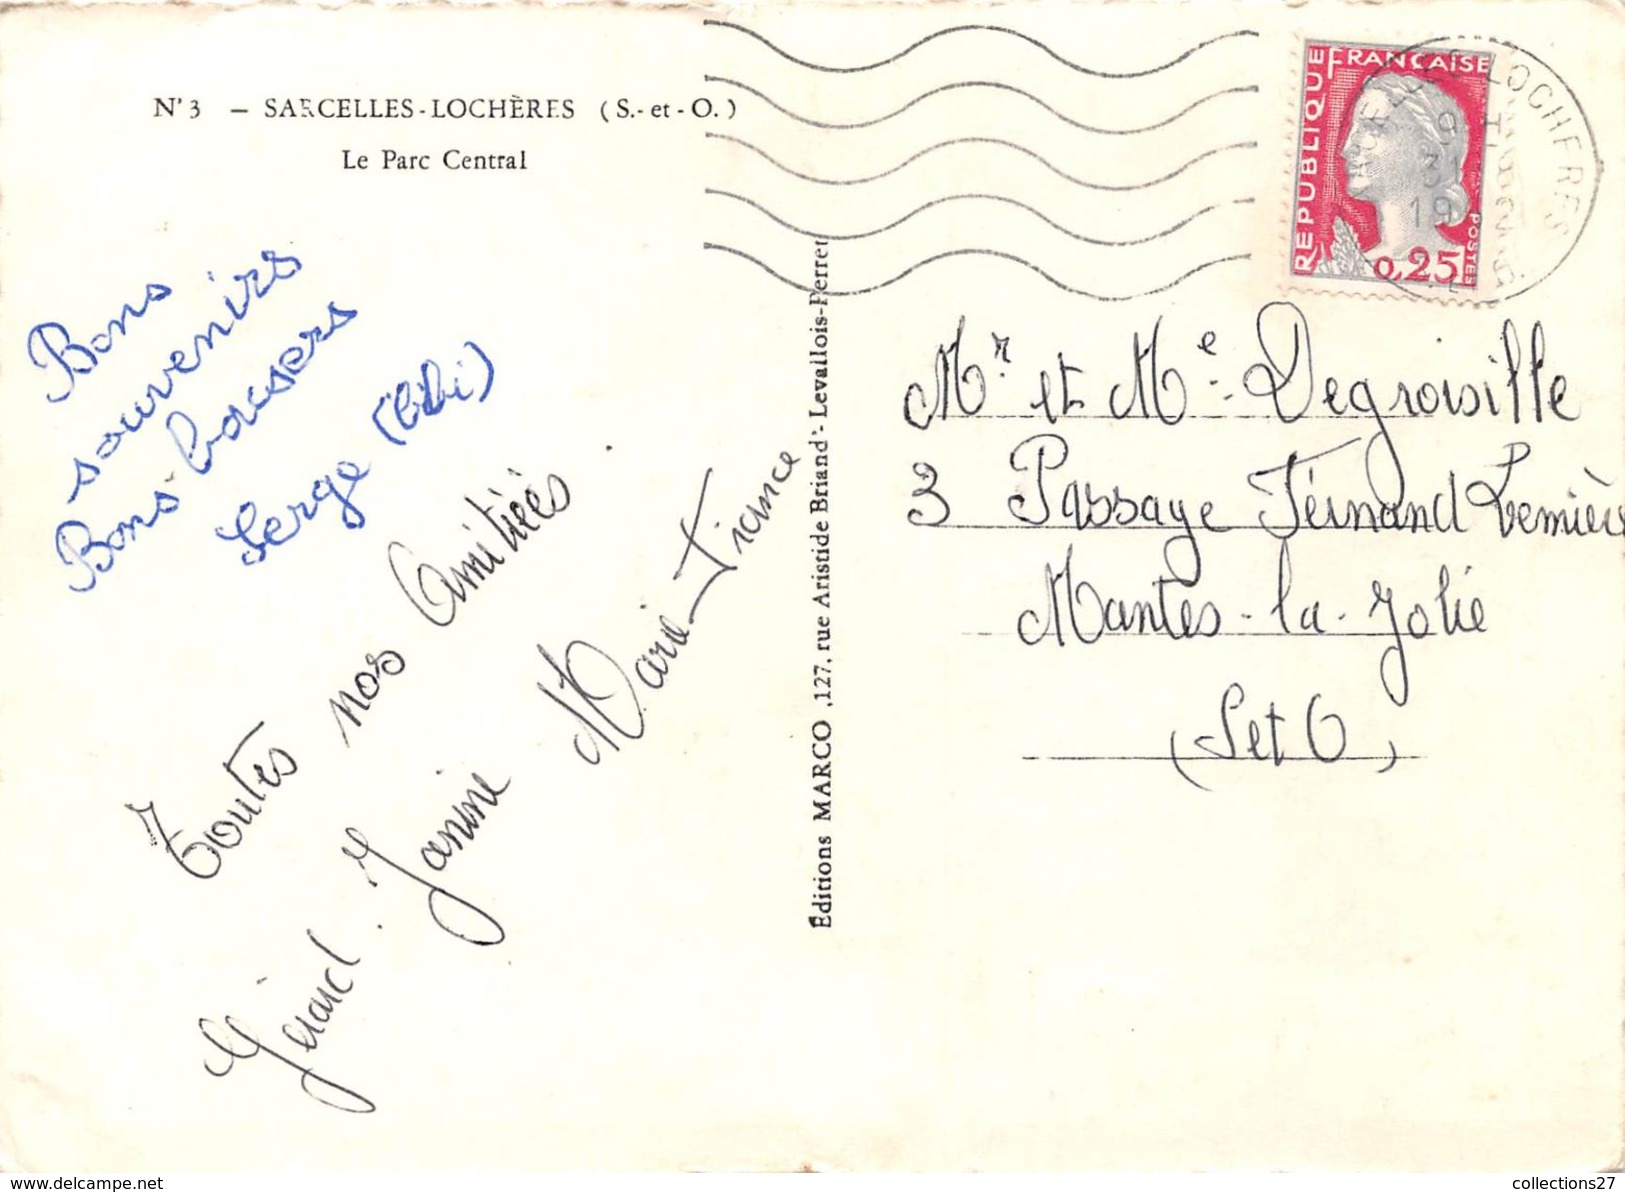 N° 3 — SARCELLES-LOCHÈRES (S.-et-O.)
Le Parc Central
Bons
souvenirs
Bons baisers
Serge (bibi)
Toutes nos Amitiées.
Gérard. Janine Marie-France
Éditions MARCO, 127, rue Aristide Briand - Levallois-Perret
RÉPUBLIQUE FRANÇAISE
POSTES
0,25
LOCHERES
Mr et Me Degroisille
3 Passage Fernand Lemière
Mantes-la-Jolie
(S et O)
www.delcampe.net
collections27